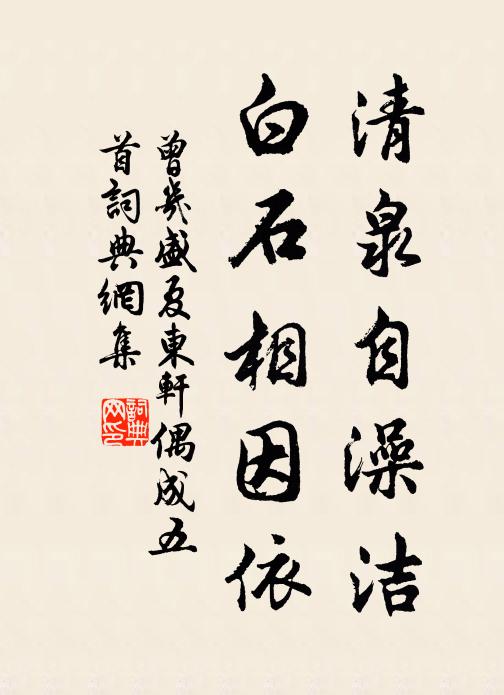 清泉自澡洁
白石相因依
曾幾盛夏東軒偶成五
首詞典網集
詞典
网印